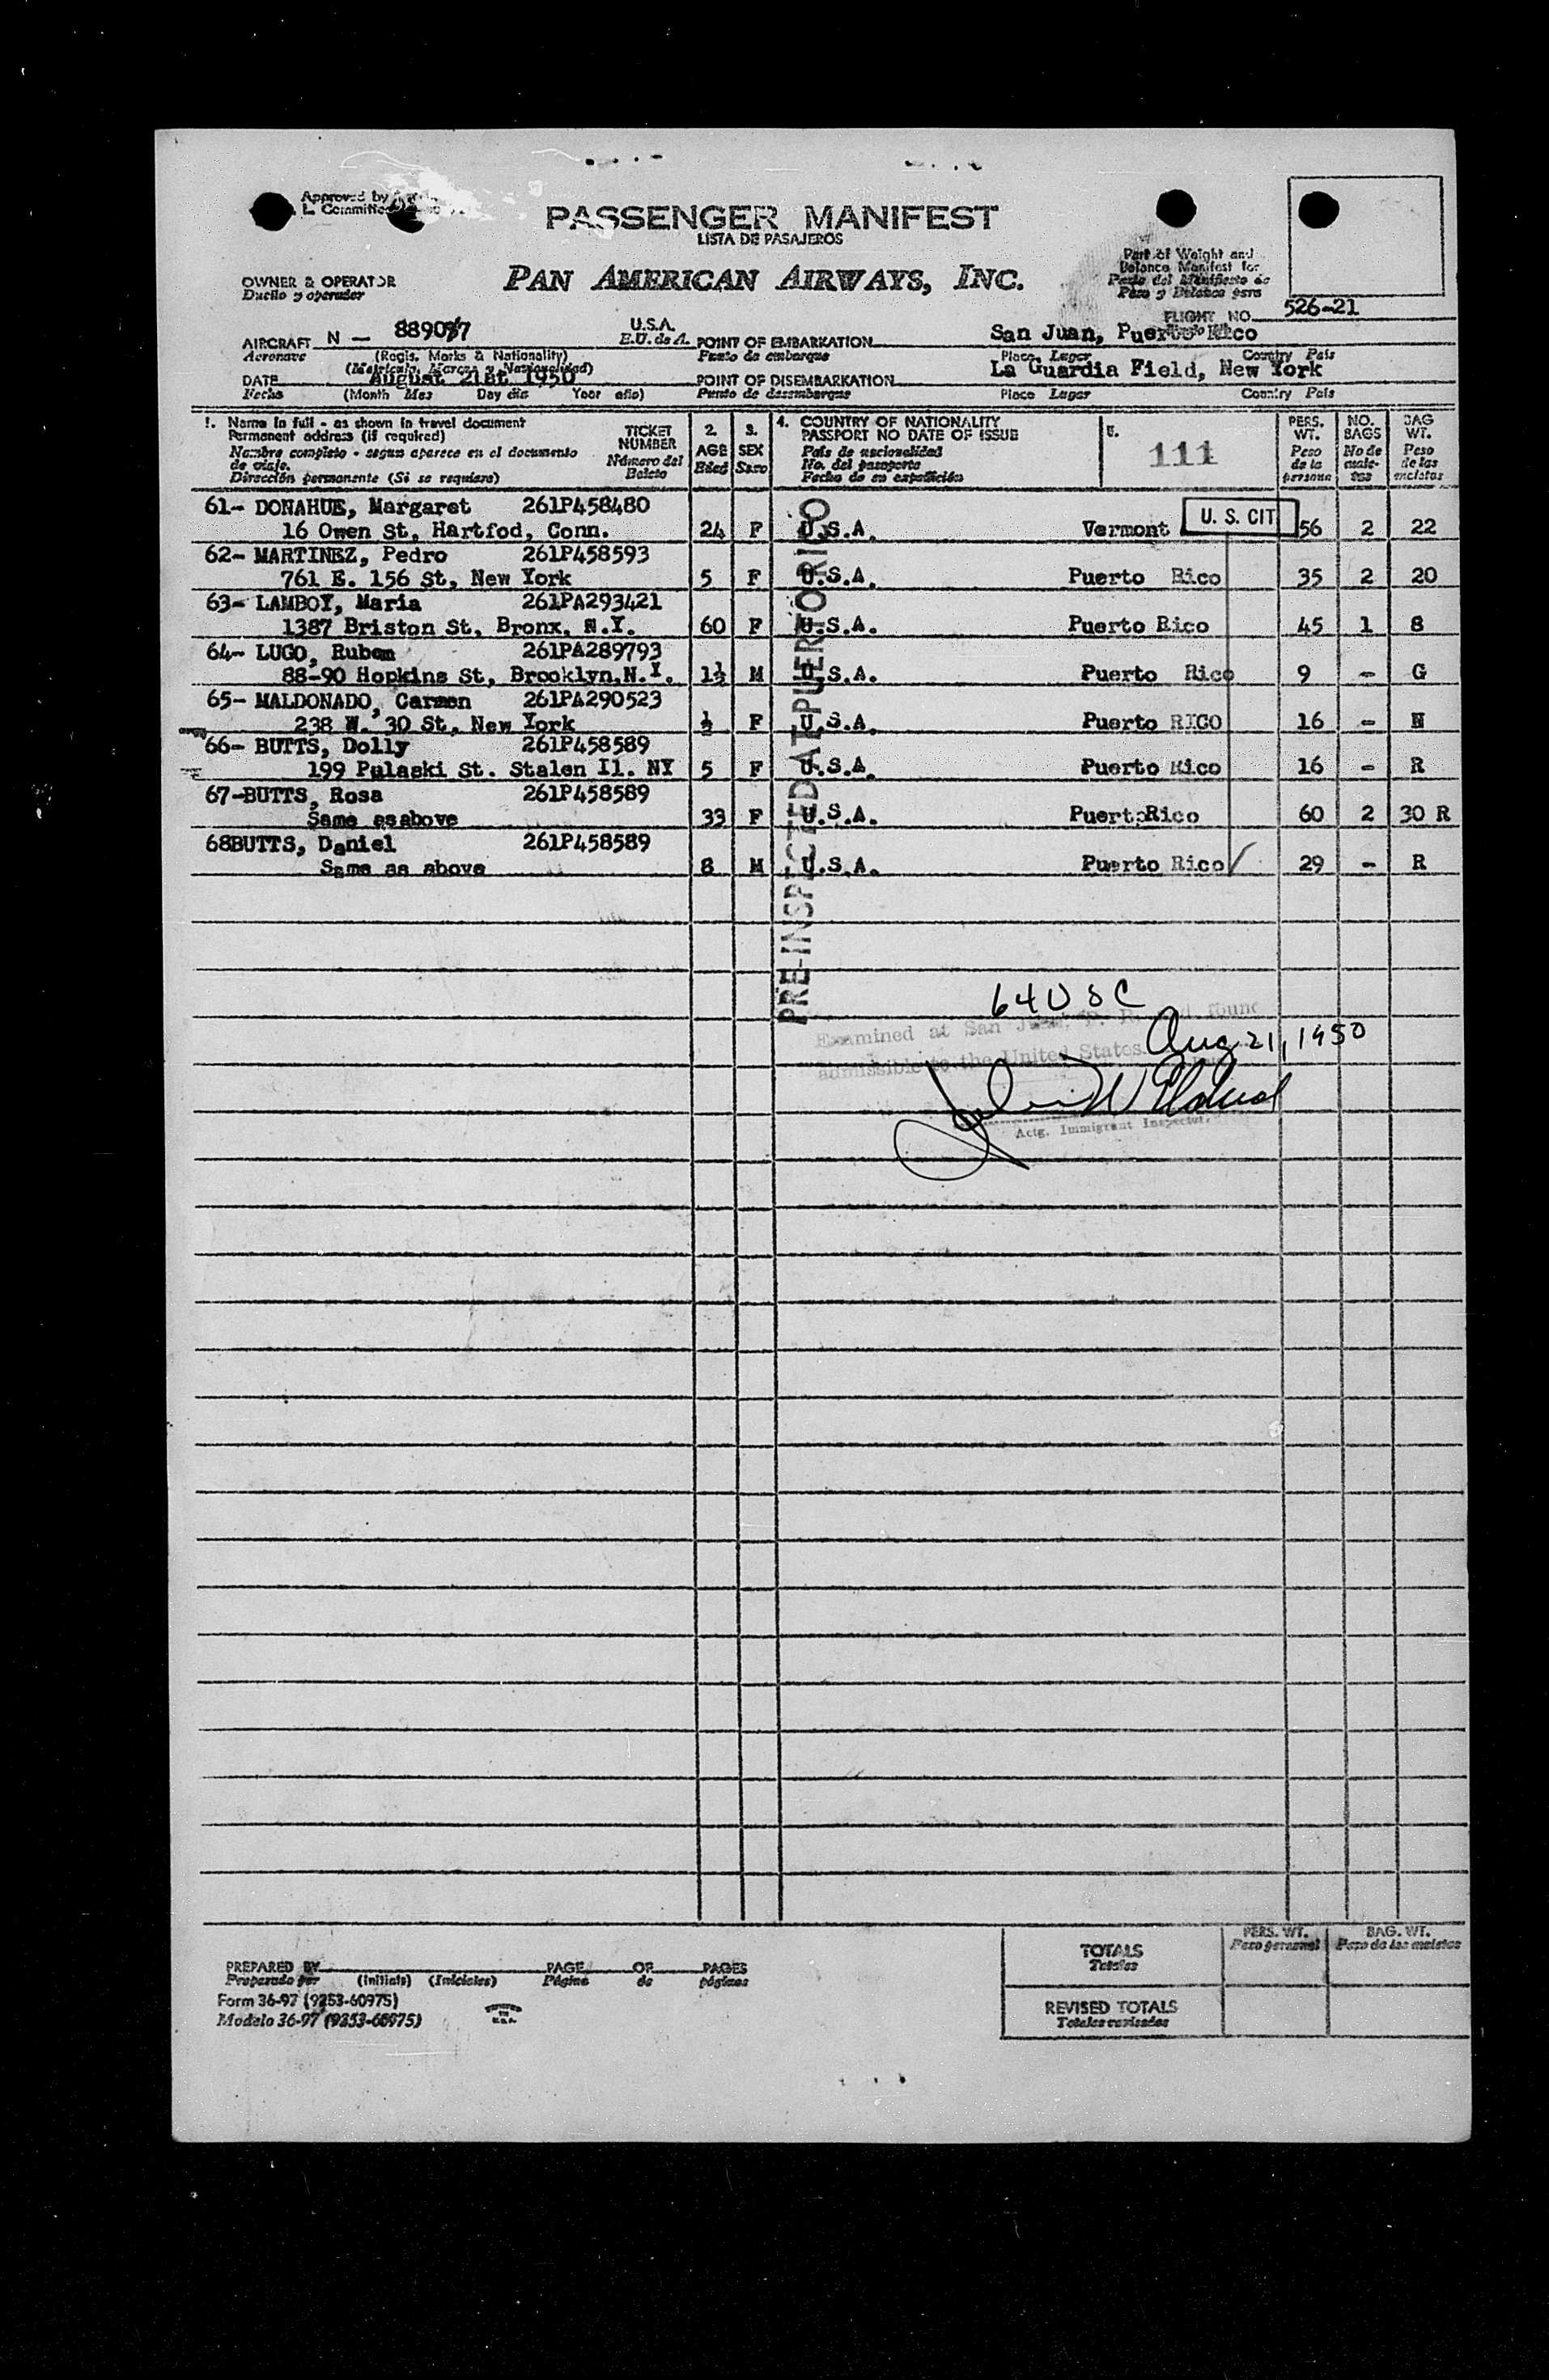 Approved by
L. Committee
PASSENGER MANIFEST
LISTA DE PASAJEROS
PAN AMERICAN AIRWAYS, INC.
Part of Weight and
Balance Manifest for
Parte del Manifiesto de
Peso y Balance para
OWNER & OPERATOR
Dueño y operador
FLIGHT NO. 526-21
AIRCRAFT N - 88907 U.S.A. POINT OF EMBARKATION San Juan, Puerto Rico
Aeronave (Regis. Marks & Nationality) E.U. de A. Punto de embarque Place Lugar Country País
(Matrícula, Marcas y Nacionalidad)
DATE August 21st 1950 POINT OF DISEMBARKATION La Guardia Field, New York
Fecha (Month Mes Day día Year año) Punto de desembarque Place Lugar Country País
1. Name in full - as shown in travel document
Permanent address (if required)
Nombre completo - segun aparece en el documento
de viaje.
Dirección permanente (Si se requiere)
TICKET
NUMBER
Número del
Boleto
2.
AGE
Edad
3.
SEX
Sexo
4. COUNTRY OF NATIONALITY
PASSPORT NO DATE OF ISSUE
País de nacionalidad
No. del pasaporte
Fecha de su expedición
5.
111
PERS.
WT.
Peso
de la
persona
NO.
BAGS
No de
male-
tas
BAG
WT.
Peso
de las
maletas
61- DONAHUE, Margaret 261P458480
16 Owen St, Hartfod, Conn. 24 F U.S.A. Vermont U. S. CIT 56 2 22
62- MARTINEZ, Pedro 261P458593
761 E. 156 St, New York 5 F U.S.A. Puerto Rico 35 2 20
63- LAMBOY, Maria 261PA293421
1387 Briston St, Bronx, N.Y. 60 F U.S.A. Puerto Rico 45 1 8
64- LUGO, Ruben 261PA289793
88-90 Hopkins St, Brooklyn,N.Y. 1½ M U.S.A. Puerto Rico 9 - G
65- MALDONADO, Carmen 261PA290523
238 W. 30 St, New York ½ F U.S.A. Puerto RICO 16 - N
66- BUTTS, Dolly 261P458589
199 Pulaski St. Stalen Il. NY 5 F U.S.A. Puerto Rico 16 - R
67-BUTTS, Rosa 261P458589
Same asabove 33 F U.S.A. PuertoRico 60 2 30 R
68BUTTS, Daniel 261P458589
Same as above 8 M U.S.A. Puerto Rico 29 - R
PRE-INSPECTED AT PUERTO RICO
64 U S C
Examined at San Juan, P. R. found
Aug 21, 1950
admissible to the United States.
Actg. Immigrant Inspector.
PREPARED BY PAGE OF PAGES
Preparado por (Initials) (Iniciales) Página de páginas
Form 36-97 (9253-60975)
Modelo 36-97 (9253-60975)
PERS. WT. BAG. WT.
Peso personal Peso de las maletas
TOTALS
Totales
REVISED TOTALS
Totales revisados